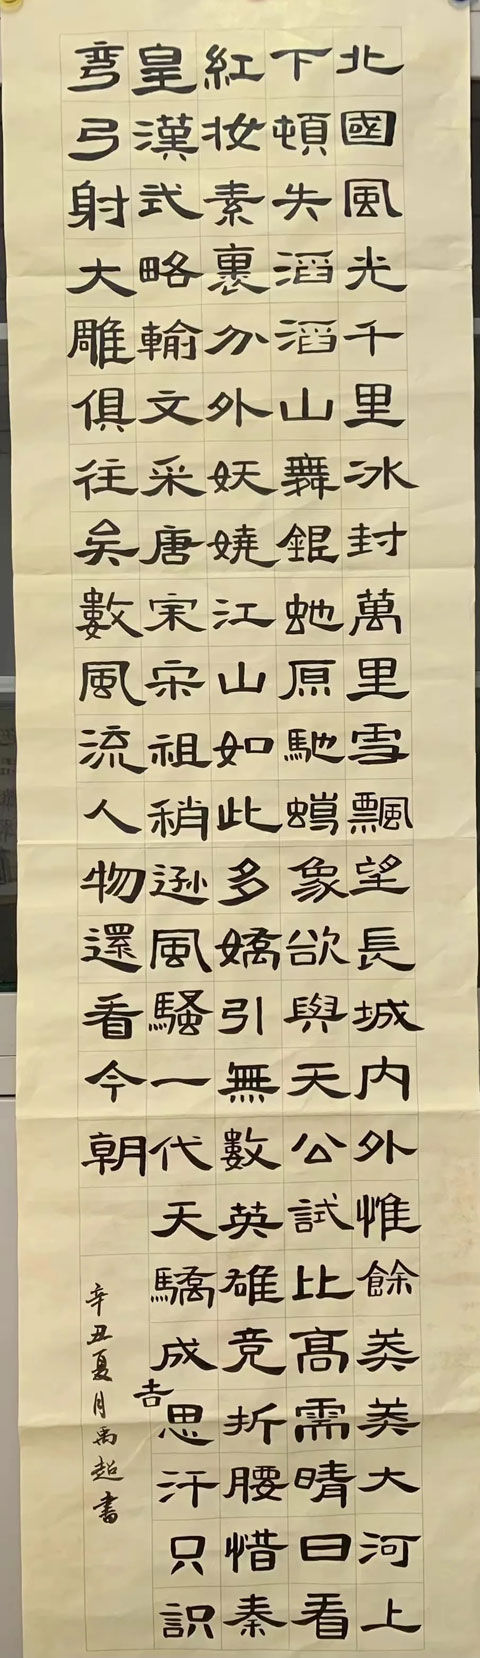 北國風光千里冰封萬里雪飄望長城内外惟餘莽莽大河上
下頓失滔滔山舞銀虵原馳蠟象欲與天公試比高需晴日看
紅妝素裹分外妖嬈江山如此多嬌引無數英雄竞折腰惜秦
皇漢武略輸文采唐宗宋祖稍遜風騷一代天驕成吉思汗只識
彎弓射大雕俱往矣數風流人物還看今朝
辛丑夏月禹超書